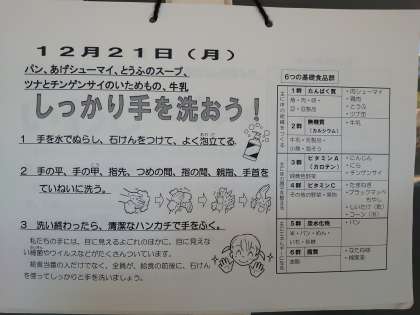 12月21日（月）
パン、あげシューマイ、とうふのスープ、
ツナとチンゲンサイのいためもの、牛乳
しっかり手を洗おう！
1 手を水でぬらし、石けんをつけて、よく泡立てる。
2 手の平、手の甲、指先、つめの間、指の間、親指、手首を
ていねいに洗う。
3 洗い終わったら、清潔なハンカチで手をふく。
私たちの手には、目に見えるよごれのほかに、目に見えな
い細菌やウイルスなどがたくさんついています。
給食当番の人だけでなく、全員が、給食の前後に、石けん
を使ってしっかりと手を洗いましょう。
6つの基礎食品群
1群 たんぱく質
魚・肉・卵・
豆・豆製品
・肉シューマイ
・鶏肉
・とうふ
・ツナ缶
2群 無機質
（カルシウム）
牛乳・乳製品・
小魚・海そう
・牛乳
3群 ビタミンA
（カロテン）
・にんじん
・にら
・チンゲンサイ
4群 ビタミンC
その他の野菜・果物
・たまねぎ
・ブラックマッペ
もやし
・しいたけ（乾）
・コーン（冷）
5群 炭水化物
米・パン・めん・
いも・砂糖
・パン
6群 脂質
・なたね油